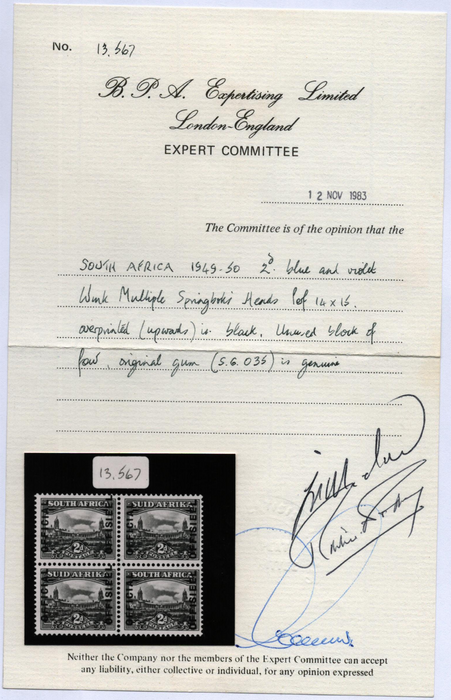 No. 13,567
B. P. A. Expertising Limited
London-England
EXPERT COMMITTEE
12 NOV 1983
The Committee is of the opinion that the
SOUTH AFRICA 1949-50 2d. blue and violet
Wmk Multiple Springbok's Heads Perf 14 x 15.
overprinted (upwards) in black, Unused block of
four, original gum (S.G. O35) is genuine
13,567
SOUTH AFRICA SUID-AFRIKA
OFFICIAL OFFISIEEL
2D 2D
SUID-AFRIKA SOUTH AFRICA
OFFICIAL OFFISIEEL
2D 2D
Neither the Company nor the members of the Expert Committee can accept
any liability, either collective or individual, for any opinion expressed